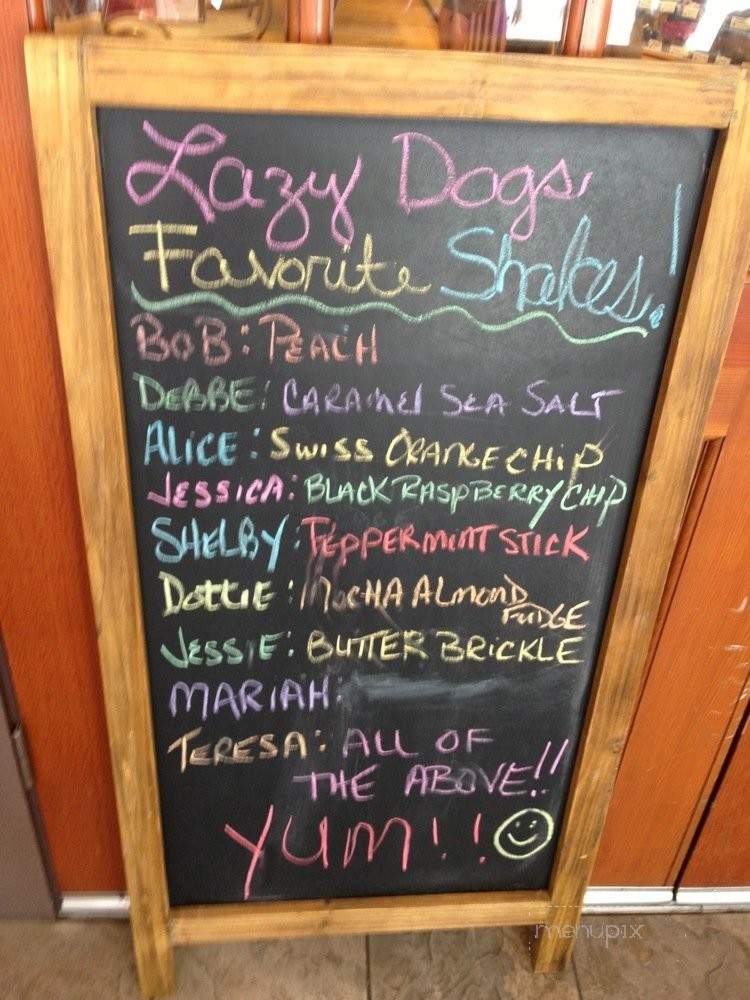 Lazy Dogs
Favorite Shakes!
BOB: PEACH
DEBBE: CARAMEL SEA SALT
ALICE: SWISS ORANGE CHIP
JESSICA: BLACK RASPBERRY CHIP
SHELBY: PEPPERMINT STICK
DOTTIE: MOCHA ALMOND
FUDGE
JESSIE: BUTTER BRICKLE
MARIAH:
TERESA: ALL OF
THE ABOVE!!
YUM!!
menupix